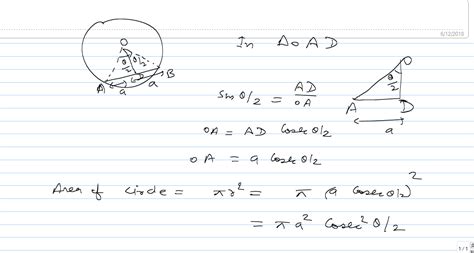 6/12/2018
In ΔOAD
O
θ/2 θ/2
A B
a a
sin θ/2 = AD/OA
O
θ/2
A D
a
OA = AD Cosec θ/2
OA = a Cosec θ/2
Area of circle = πr² = π (a Cosec θ/2)²
= πa² Cosec² θ/2
1/1